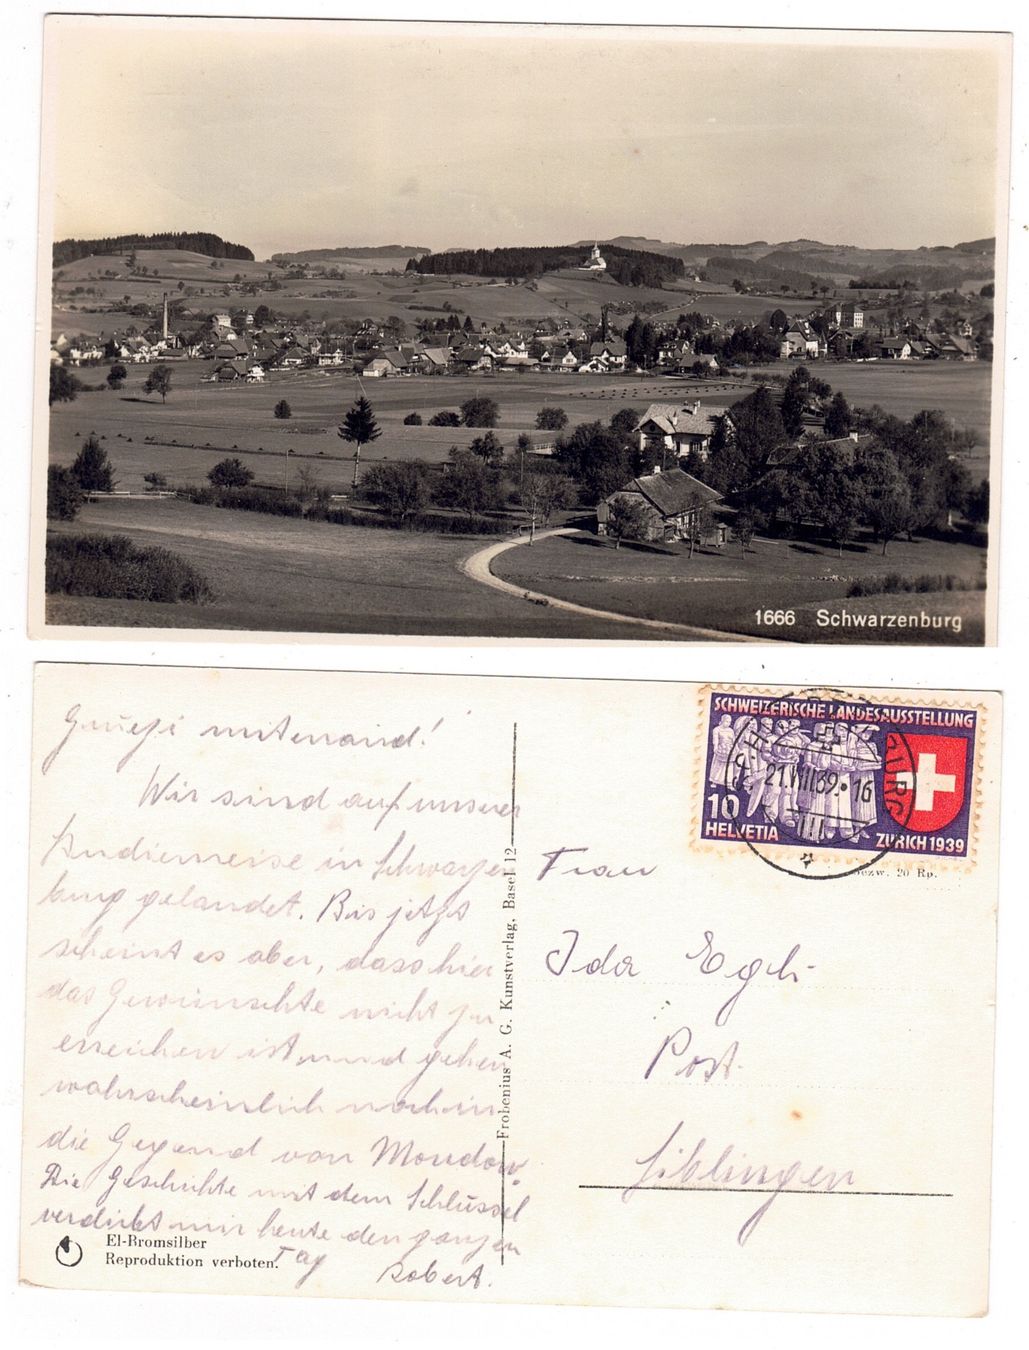 1666 Schwarzenburg
Gruezi mitenand!
Wir sind auf unserer
in Schwarzen
burg gelandet. Bis jetzt
scheint es aber, dass hier
das Gewünschte nicht zu
erreichen ist und gehen
wahrscheinlich noch in
die Gegend von Moudon.
Die Geschichte mit dem Schlüssel
verdirbt mir heute den ganzen
Tag
Robert.
El-Bromsilber
Reproduktion verboten.
Frobenius A. G. Kunstverlag, Basel 12
SCHWEIZERISCHE LANDESAUSSTELLUNG
10
HELVETIA
ZÜRICH 1939
21.VIII.39. 16
bezw. 20 Rp.
Frau
Ida Egli
Post.
Siblingen